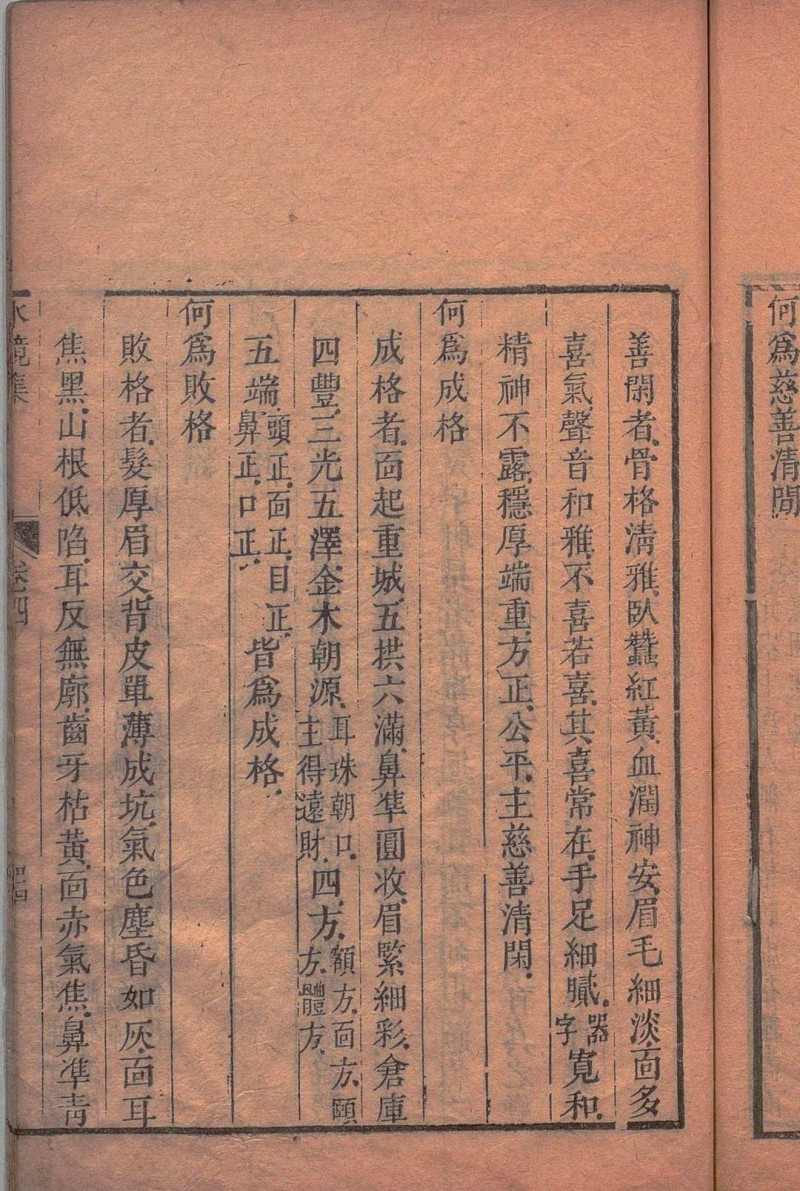 何爲慈善清閒
善閑者骨格清雅臥蠶紅黃血潤神安眉毛細淡面多
喜氣聲音和雅不喜若喜其喜常在手足細膩器字寬和
精神不露穩厚端重方正公平主慈善清閑
何爲成格
成格者面起重城五拱六滿鼻準圓收眉緊細彩倉庫
四豐三光五澤金木朝源耳珠朝口主得遠財四方額方面方頤方體方
五端頭正面正目正鼻正口正皆爲成格
何爲敗格
敗格者髮厚眉交背皮單薄成坑氣色塵昏如灰面耳
焦黑山根低陷耳反無廓齒牙枯黃面赤氣焦鼻準青
水鏡集 卷四